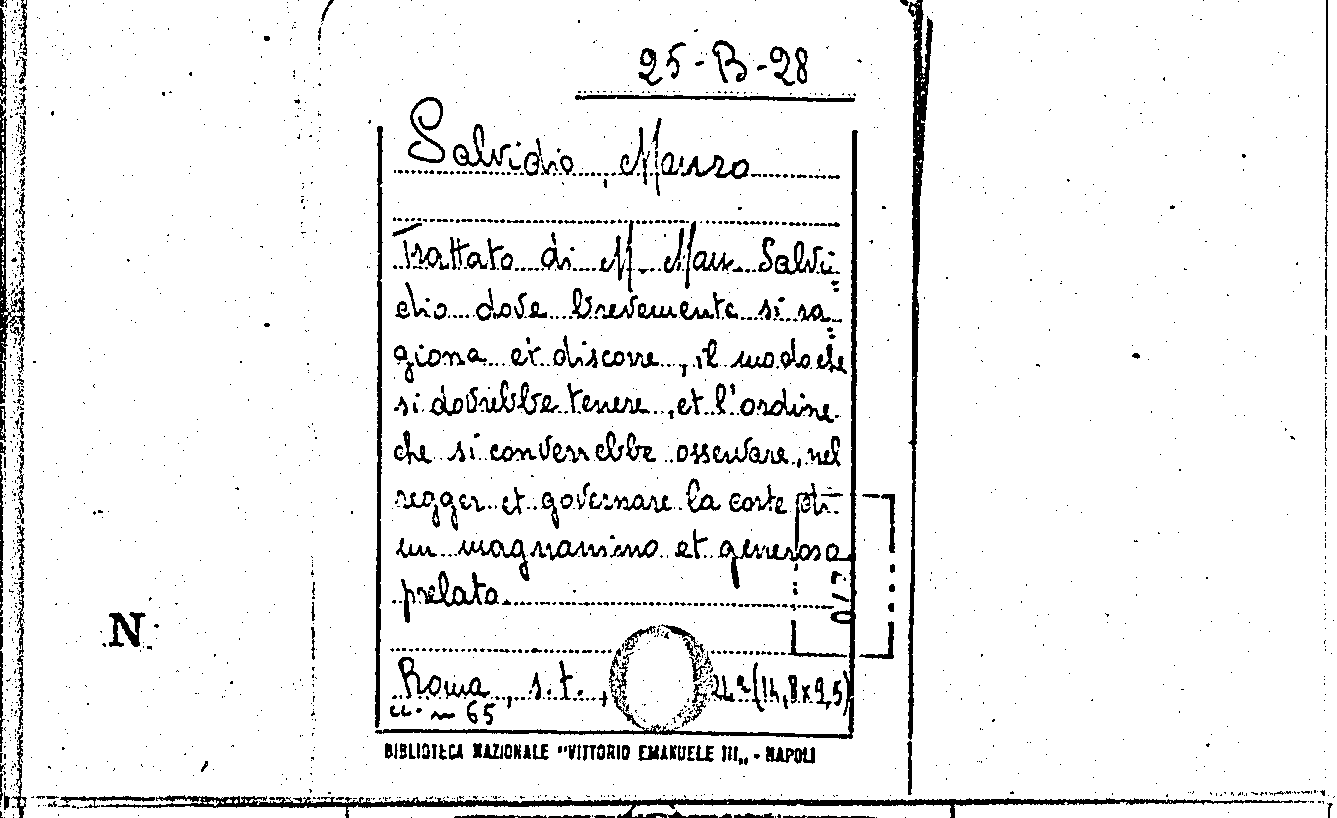 25-B-28
Salvidio, Mauro
Trattato di M. Mau. Salvi=
dio dove brevemente si ra=
giona et discorre, il modo che
si dovrebbe tenere, et l'ordine
che si converrebbe osservare, nel
regger et governare la corte di
un magnanimo et generoso
prelato.
N
Roma, s.t., 24° (14,8x9,5)
65
BIBLIOTECA NAZIONALE "VITTORIO EMANUELE III„ - NAPOLI